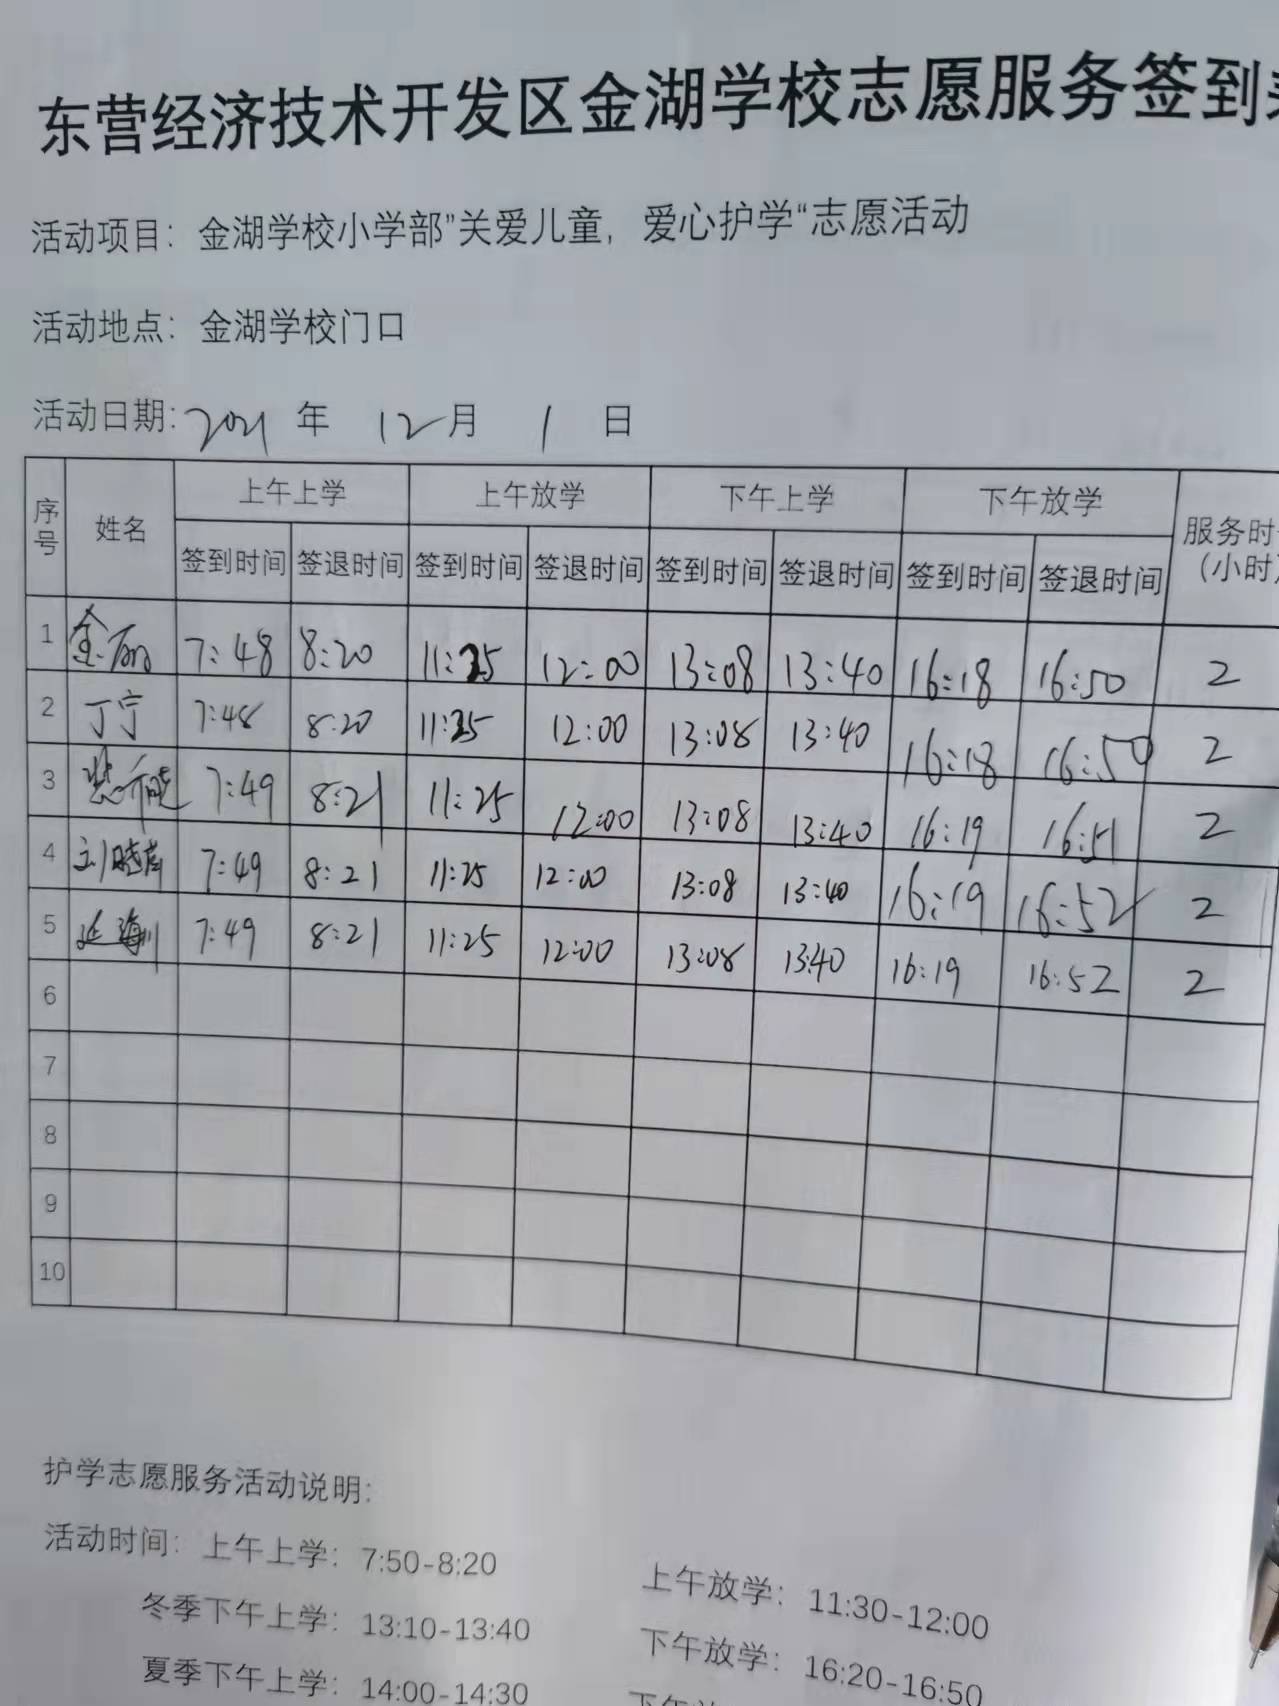 东营经济技术开发区金湖学校志愿服务签到
活动项目：金湖学校小学部”关爱儿童，爱心护学“志愿活动
活动地点：金湖学校门口
活动日期：2021 年 12 月 1 日
序号 姓名 上午上学 上午放学 下午上学 下午放学 服务时 （小时）
签到时间 签退时间 签到时间 签退时间 签到时间 签退时间 签到时间 签退时间
1 金丽 7:48 8:20 11:25 12:00 13:08 13:40 16:18 16:50 2
2 丁宁 7:48 8:20 11:25 12:00 13:08 13:40 16:18 16:50 2
3 7:49 8:21 11:25 12:00 13:08 13:40 16:19 16:51 2
4 7:49 8:21 11:25 12:00 13:08 13:40 16:19 16:52 2
5 延海川 7:49 8:21 11:25 12:00 13:08 13:40 16:19 16:52 2
6
7
8
9
10
护学志愿服务活动说明：
活动时间：上午上学：7:50-8:20 上午放学：11:30-12:00
冬季下午上学：13:10-13:40 下午放学：16:20-16:50
夏季下午上学：14:00-14:30